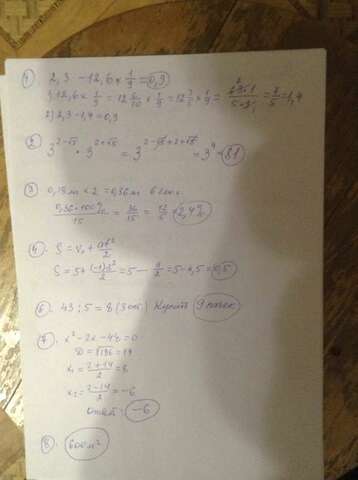 1 2,3 - 12,6 × 1/9 = 0,9
1) 12,6 × 1/9 = 12 6/10 × 1/9 = 12 3/5 × 1/9 = = 7/5 = 1,4
2) 2,3 - 1,4 = 0,9
2 3^(2-√5) · 3^(2+√5) = 3^(2-√5+2+√5) = 3^4 = 81
3 0,18 м × 2 = 0,36 м
0,36 · 100% / 15 = 36/15 = 12/5 = 2,4%
S = V₀ +
S = 5 + = 5 - = 5 - 4,5 = 0,5
6. 43 : 5 = 8 (3 ост) Купит 9 пачек
7 x² - 2x - 48 = 0
D = √196 = 14
x₁ = (2+14)/2 = 8
x₂ = (2-14)/2 = -6
Ответ: -6
8. 600 м²